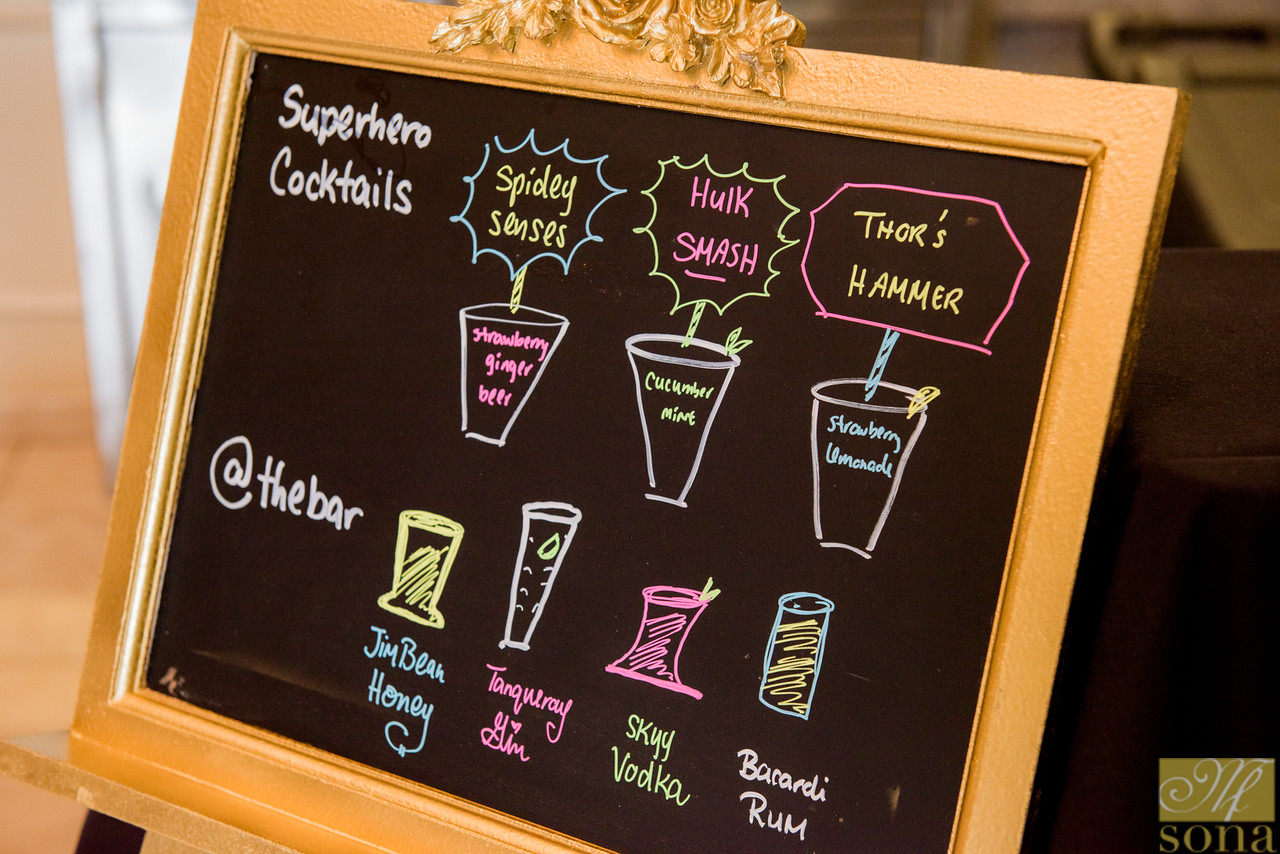 Superhero
Cocktails
Spidey
senses
strawberry
ginger
beer
HULK
SMASH
cucumber
mint
THOR'S
HAMMER
strawberry
lemonade
@thebar
Jim Bean
Honey
Tanqueray
Gin
SKYY
Vodka
Bacardi
RUM
sona